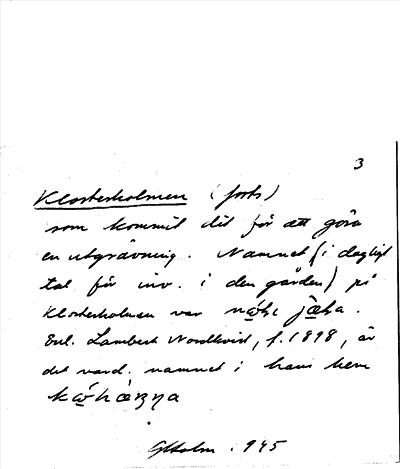 3
Klosterholmen (forts)
som kommit dit för att göra
en utgrävning. Namnet (i dagligt
tal för inv. i den gården) på
Klosterholmen var
Enl. Lambert Nordkvist, f. 1898, är
det vard. namnet i hans hem
GHolm. 1945